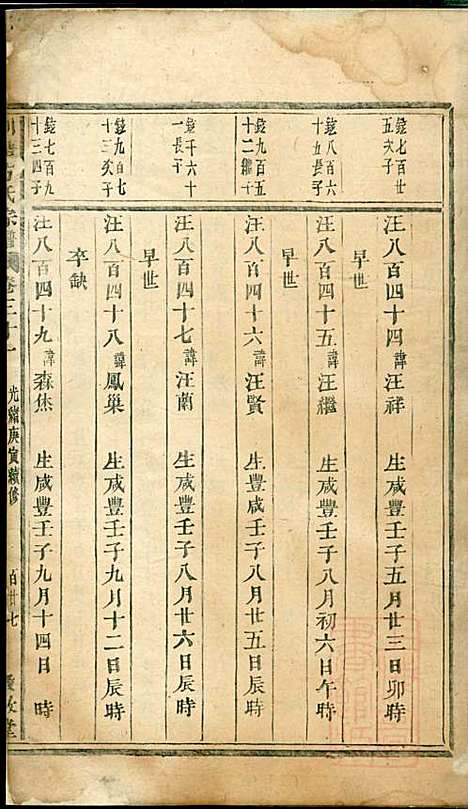 鏡七百廿
五次子
汪八百四十四諱汪祥 生咸豐壬子五月廿三日卯時
早世
鏡八百六
十五長子
汪八百四十五諱汪繼 生咸豐壬子八月初六日午時
早世
鏡九百五
十二繼子
汪八百四十六諱汪賢 生豐咸壬子八月廿五日辰時
鏡千六十
一長子
汪八百四十七諱汪蘭 生咸豐壬子八月廿六日辰時
早世
鏡九百七
十三次子
汪八百四十八諱鳳巢 生咸豐壬子九月十二日辰時
卒缺
鏡七百九
十三四子
汪八百四十九諱森焦 生咸豐壬子九月十四日 時
氏宗譜 卷三十一 光緒庚寅續修 百廿七 敦堂